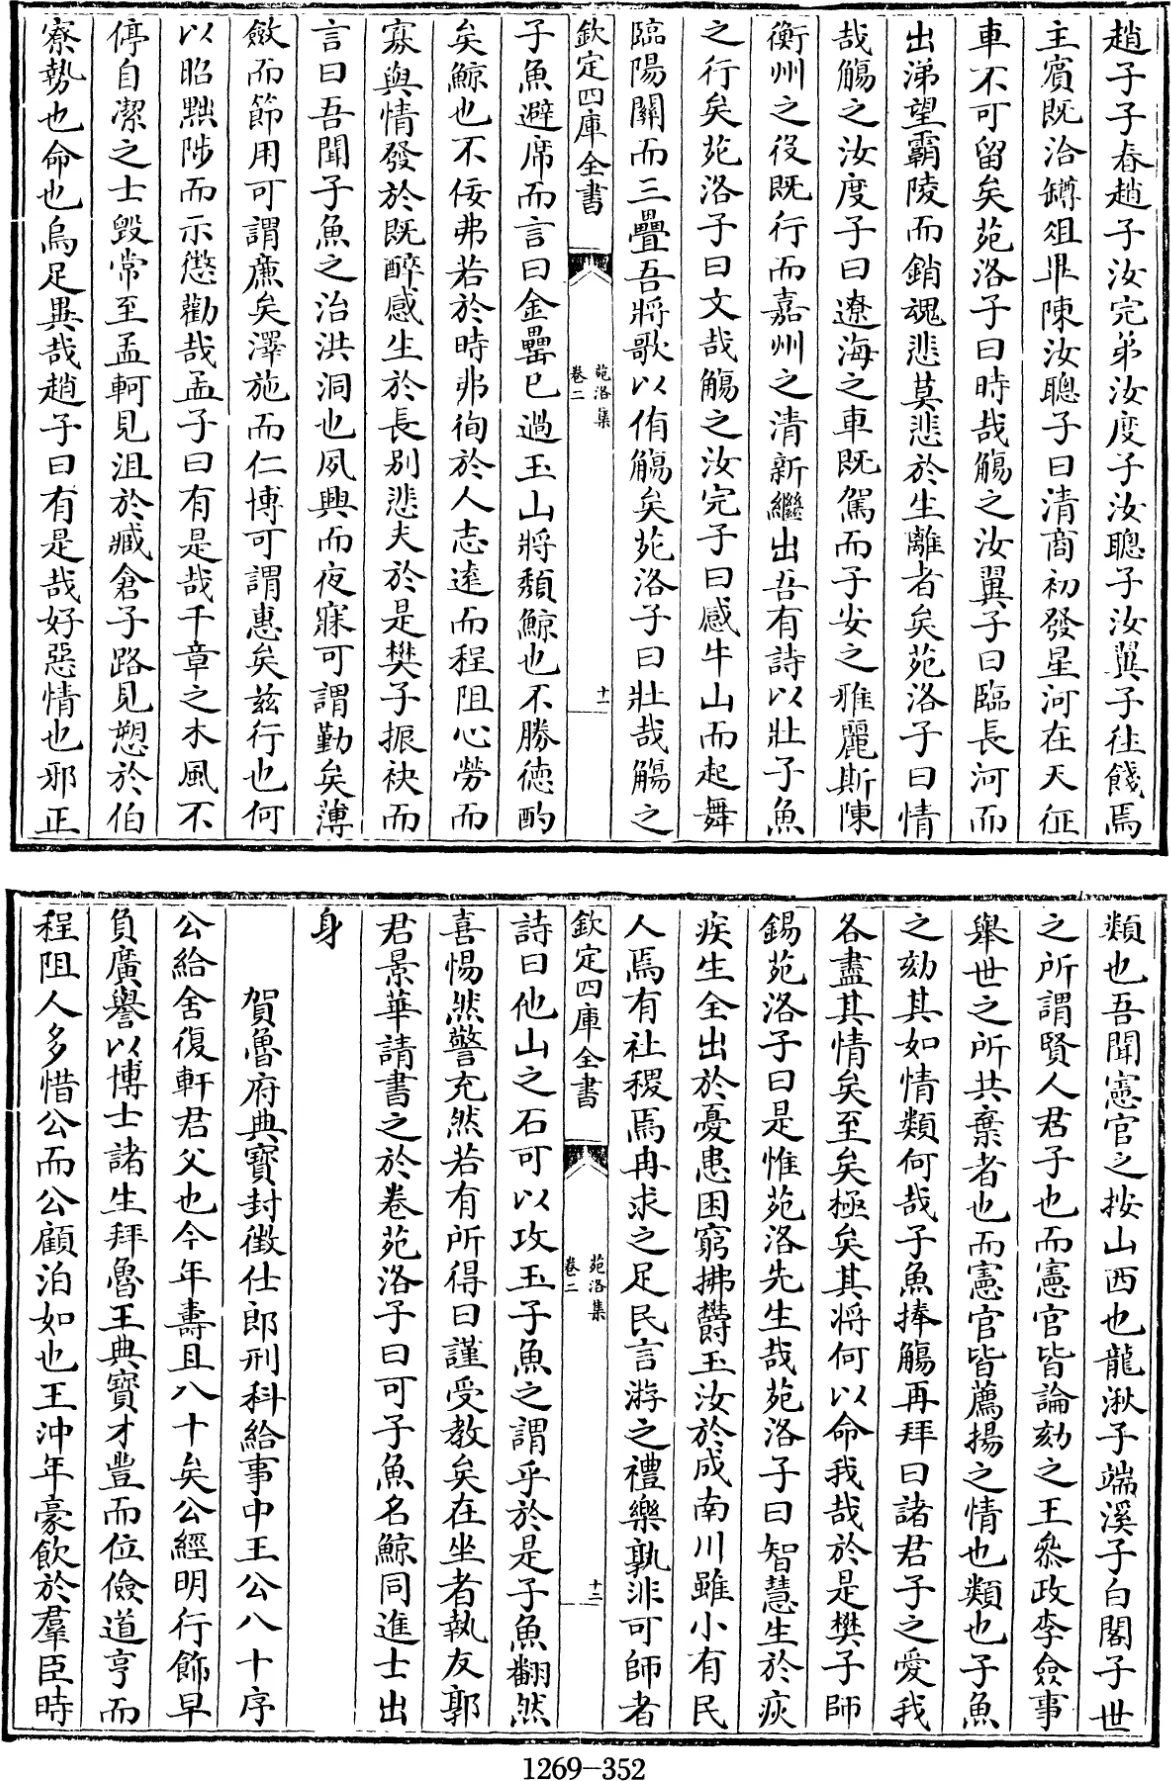 趙子子春趙子汝完弟汝度子汝聰子汝翼子往餞焉
主賓既洽罇俎畢陳汝聰子曰清商初發星河在天征
車不可留矣苑洛子曰時哉觴之汝翼子曰臨長河而
出涕望霸陵而銷魂悲莫悲於生離者矣苑洛子曰情
哉觴之汝度子曰遼海之車既駕而子安之雅麗斯陳
衡州之役既行而嘉州之清新繼出吾有詩以壯子魚
之行矣苑洛子曰文哉觴之汝完子曰感牛山而起舞
臨陽關而三疊吾將歌以侑觴矣苑洛子曰壯哉觴之
欽定四庫全書
苑洛集
卷二
十一
子魚避席而言曰金罍已過玉山將頹鯨也不勝德酌
矣鯨也不佞弗若於時弗徇於人志遠而程阻心勞而
寡與情發於既醉感生於長别悲夫於是樊子振袂而
言曰吾聞子魚之治洪洞也夙興而夜寐可謂勤矣薄
斂而節用可謂亷矣澤施而仁博可謂惠矣兹行也何
以昭黜陟而示懲勸哉孟子曰有是哉千章之木風不
停自潔之士毀常至孟軻見沮於臧倉子路見愬於伯
寮勢也命也烏足異哉趙子曰有是哉好惡情也邪正
類也吾聞憲官之按山西也龍湫子端溪子白閣子世
之所謂賢人君子也而憲官皆論劾之王叅政李僉事
舉世之所共棄者也而憲官皆薦揚之情也類也子魚
之劾其如情類何哉子魚捧觴再拜曰諸君子之愛我
各盡其情矣至矣極矣其將何以命我哉於是樊子師
錫苑洛子曰是惟苑洛先生哉苑洛子曰智慧生於疢
疾生全出於憂患困窮拂欝玉汝於成南川雖小有民
人焉有社稷焉冉求之足民言游之禮樂孰非可師者
欽定四庫全書
苑洛集
卷二
十二
詩曰他山之石可以攻玉子魚之謂乎於是子魚翻然
喜惕然警充然若有所得曰謹受教矣在坐者執友郭
君景華請書之於卷苑洛子曰可子魚名鯨同進士出
身
賀魯府典寶封徵仕郎刑科給事中王公八十序
公給舍復軒君父也今年壽且八十矣公經明行飾早
負廣譽以博士諸生拜魯王典寶才豐而位儉道亨而
程阻人多惜公而公顧泊如也王沖年豪飲於羣臣時
1269—352